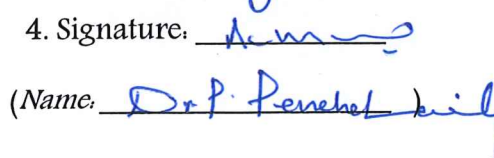 4. Signature:
(Name: Dr P. Penchal